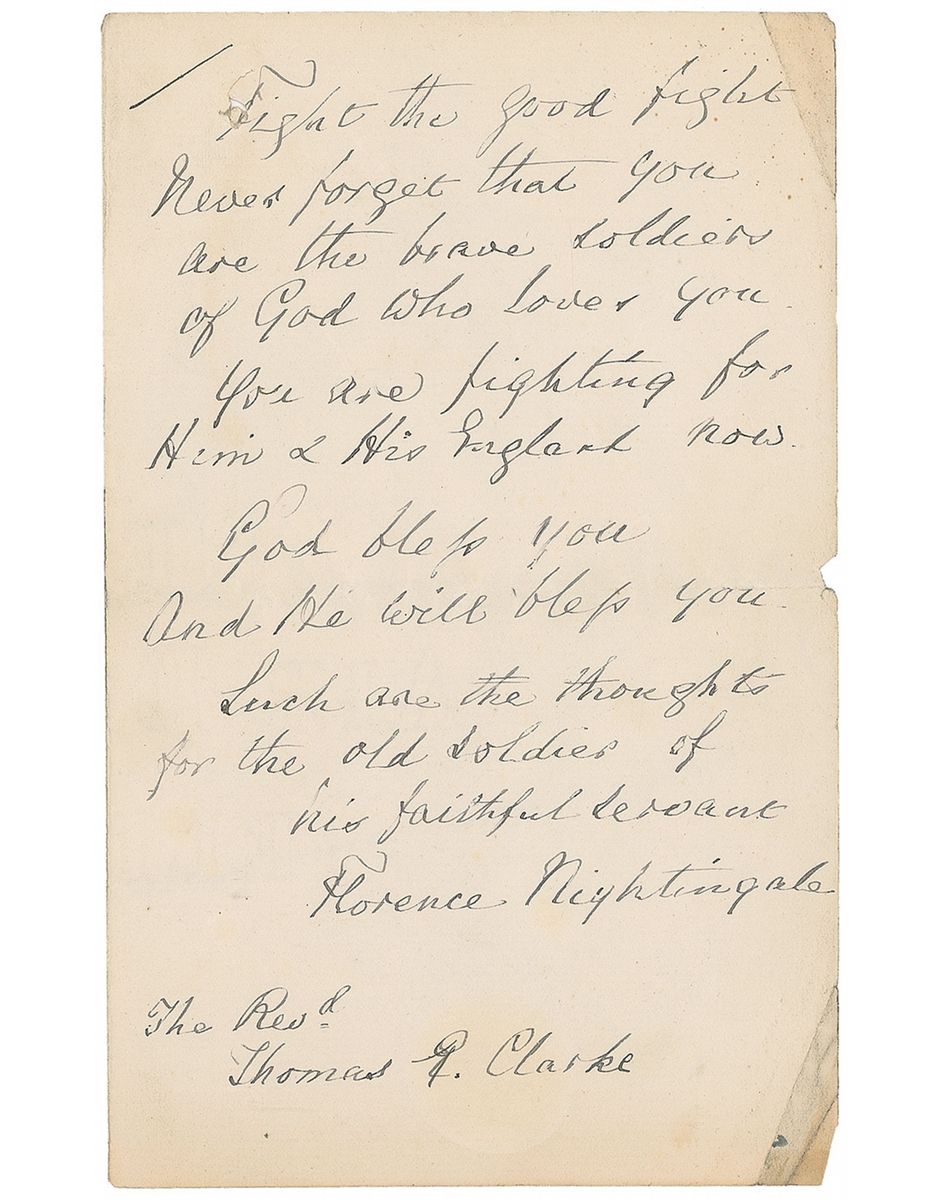 Fight the good fight
Never forget that you
are the brave soldiers
of God who loves you.
You are fighting for
Him & His England now.
God bless you
And He will bless you.
Such are the thoughts
for the old soldier of
his faithful servant
Florence Nightingale
The Revd
Thomas Clarke